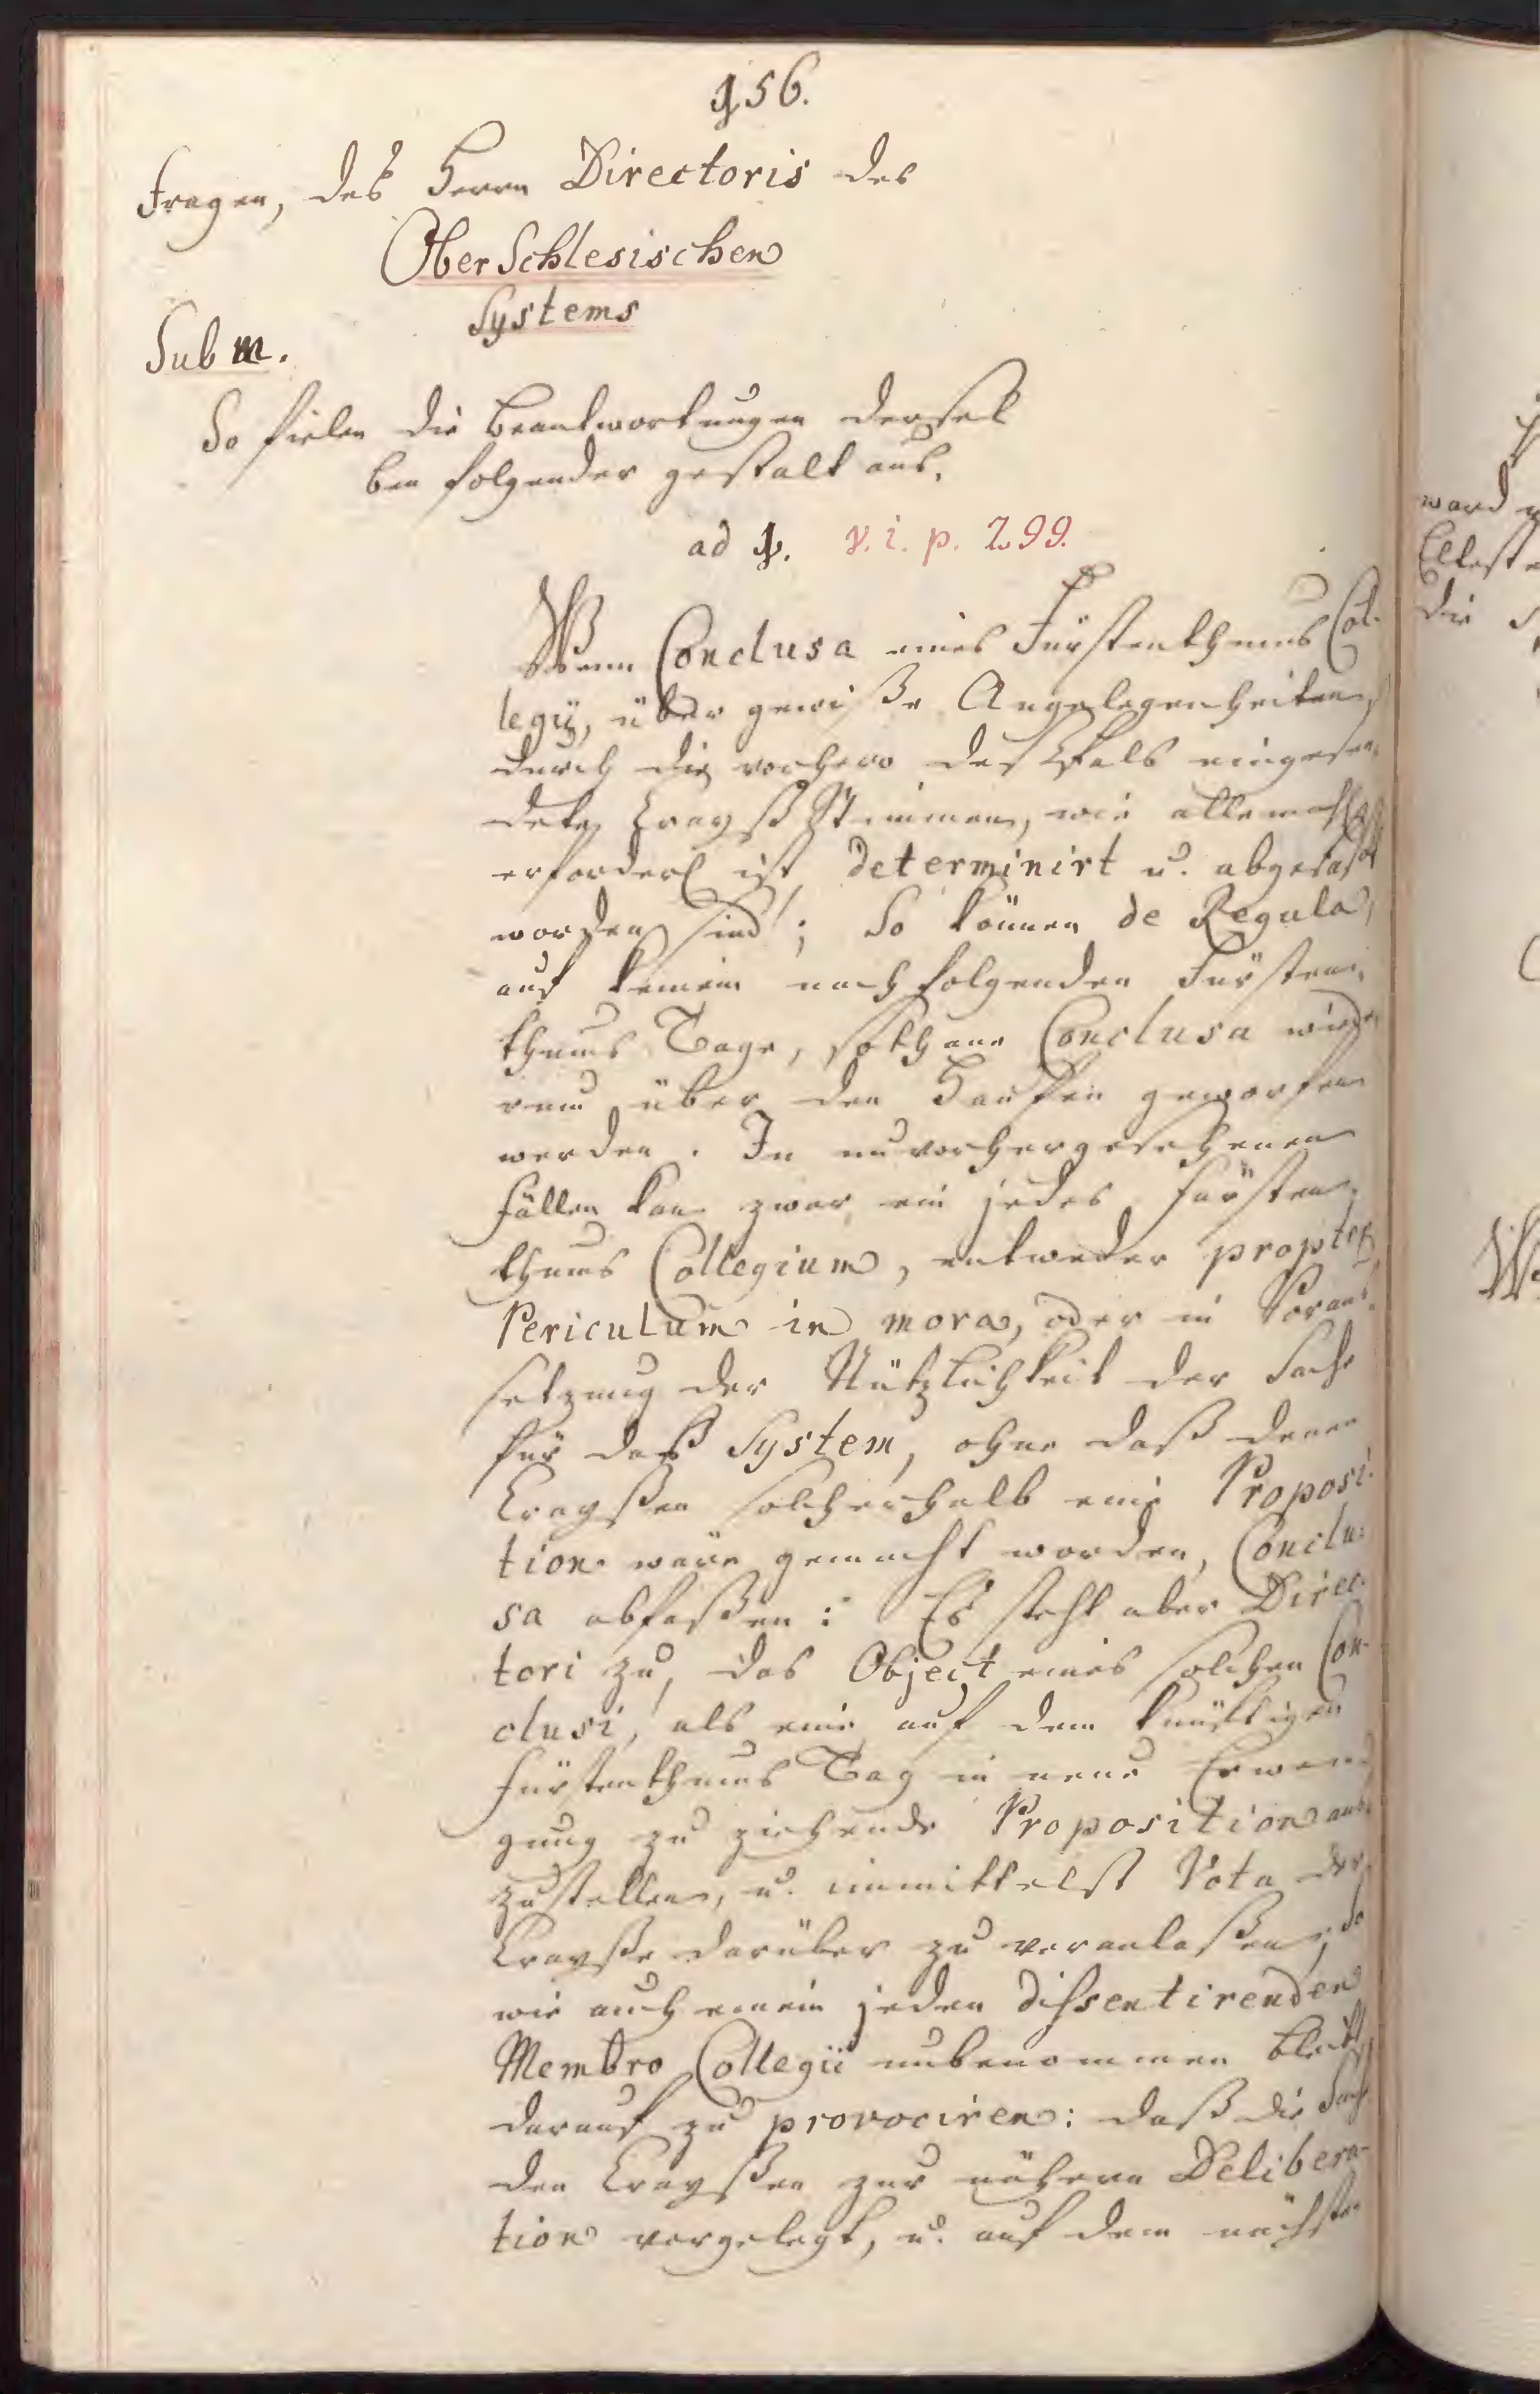 156.
Fragen, des Herrn Directoris des
OberSchlesischen
Systems
Sub m.
So fielen die Beantwortungen dersel
ben folgender gestalt aus.
ad 1. v. i. p. 299.
Wenn Conclusa eines Fürstenthums Col-
legii, über gewiße Angelegenheiten
durch die vorhero desfals eingesen-
dete Crayß Stimmen, wie allemahl
erforderl ist, determinirt u. abgefaßt
worden sind; So können de Regula,
auf keinem nachfolgenden Fürsten-
thums Tage, sothane Conclusa wiede
rum über den Haufen geworfen
werden. In unvorhergesehenen
Fällen kan zwar ein jedes Fürsten-
thums Collegium, entweder propter
Periculum in mora, oder in Voraus-
setzung der Nützlichkeit der Sache
für das System, ohne daß denen
Crayßen solcherhalb eine Proposi-
tion wäre gemacht worden, Conclu-
sa abfaßen: Es steht aber Direc-
tori zu, das Object eines solchen Con-
clusi, als eine auf dem künftigen
Fürstenthums Tag in neue Erwen
gung zu ziehende Proposition aus-
zustellen, u. immittelst Vota der
Crayße darüber zu veranlaßen; So
wie auch einem jeden dissentirenden
Membro Collegii unbenommen bleibt
darauf zu provociren: daß die Sache
den Crayßen zur nähern Delibera-
tion vorgelegt, u. auf dem nächsten
ward
Eltest
die